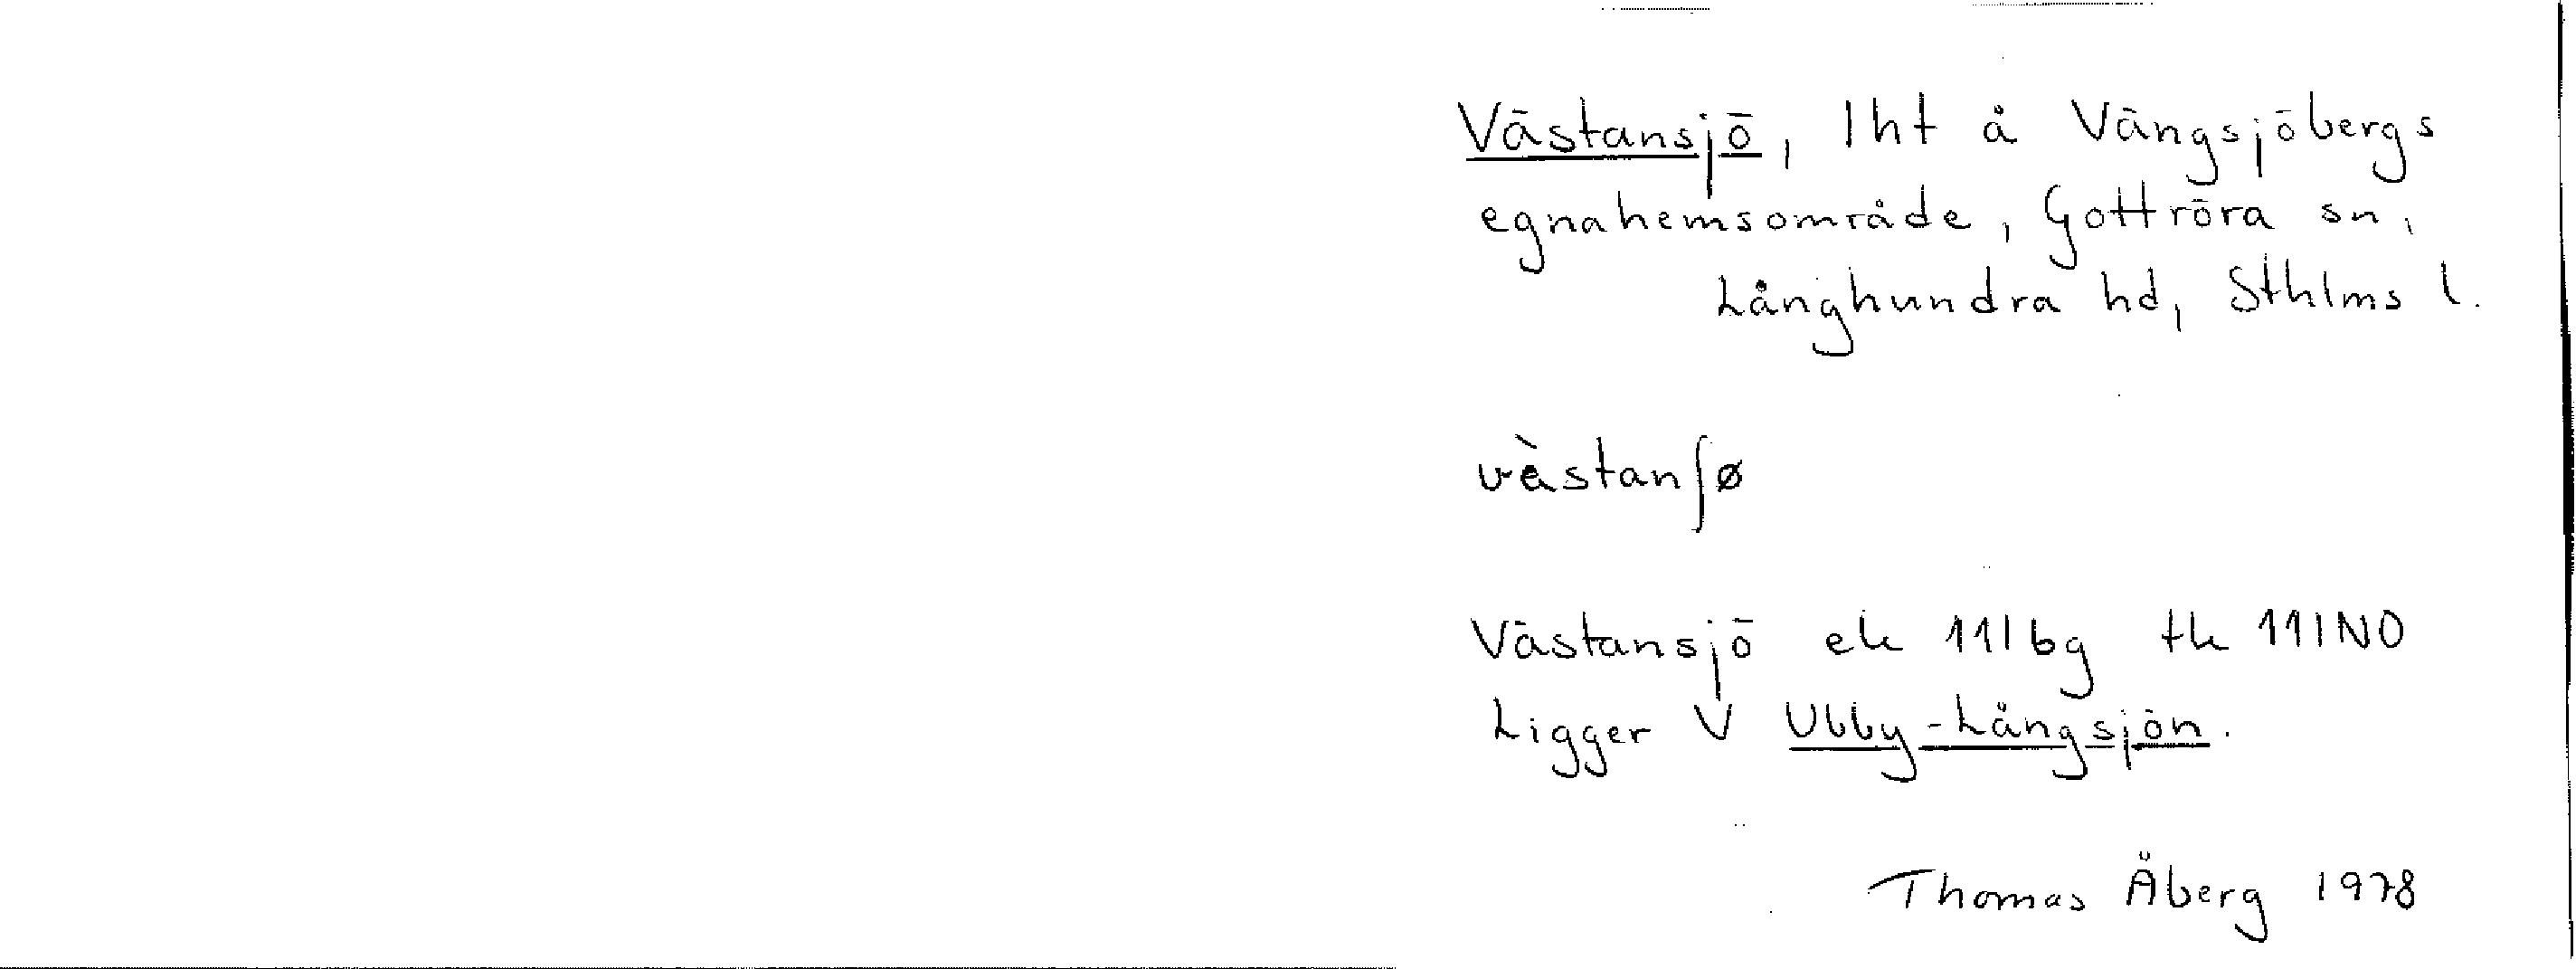 Västansjö, lht å Vängsjöbergs
egnahemsområde, Gottröra sn,
Långhundra hd, Sthlms l.
vèstanʃø
Västansjö ek 11I6g tk 11INO
Ligger V Ubby-Långsjön.
Thomas Åberg 1978